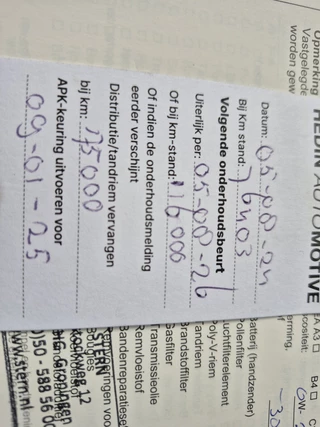 Opmerking
Vastgelegde
worden gew
HEDIN AUTOMOTIVE
Datum: 05-08-24
Bij Km stand: 76403
Volgende onderhoudsbeurt
Uiterlijk per: 05-08-26
Of bij km-stand: 116000
Of indien de onderhoudsmelding
eerder verschijnt
Distributie/tandriem vervangen
bij km: 175000
APK-keuring uitvoeren voor
09-01-25
A A3
B4
Batterij (handzender)
Pollenfilter
Luchtfilterelement
Poly-V-riem
Tandriem
Brandstoffilter
Gasfilter
Transmissieolie
Remvloeistof
Bandenreparatieset
STERN
Bougies
koopkweg 12
Groningen
050 - 588 56 0
www.stern.nl